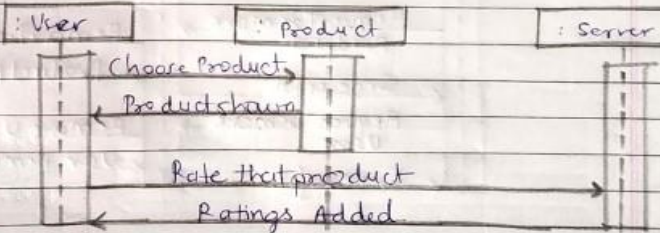 : User
: Product
: Server
Choose Product
Product shown
Rate that product
Ratings Added